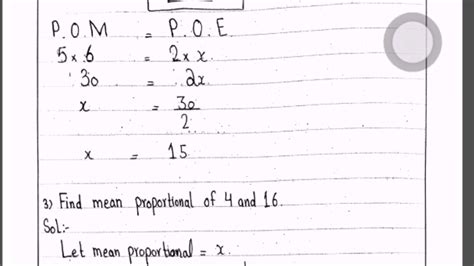 P.O.M = P.O.E
5 × 6 = 2 × x
30 = 2x
x = 30/2
x = 15
3) Find mean proportional of 4 and 16.
Sol:-
Let mean proportional = x.